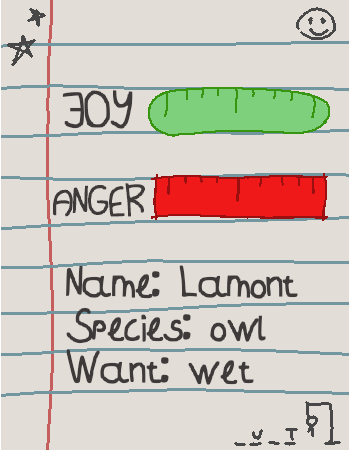 JOY
ANGER
Name: Lamont
Species: owl
Want: wet
_ U _ T _